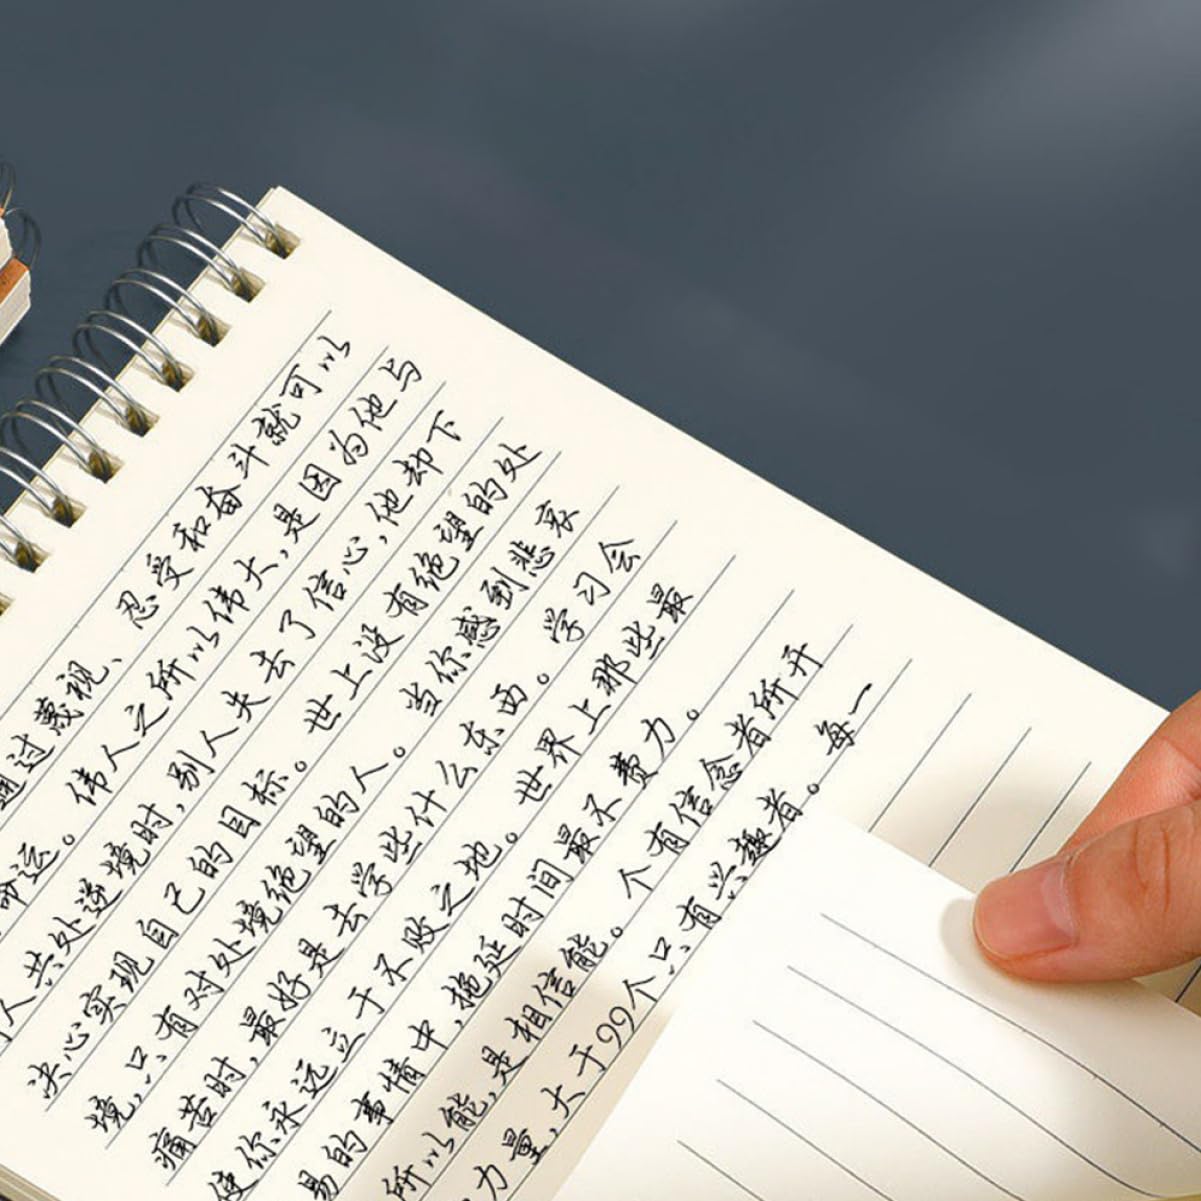 通过藐视、忍受和奋斗就可以
命运。伟人之所以伟大，是因为他与
人共处逆境时，别人失去了信心，他却下
决心实现自己的目标。世上没有绝望的处
境，只有对处境绝望的人。当你感到悲哀
痛苦时，最好是去学些什么东西。学习会
使你永远立于不败之地。世界上那些最
易的事情中，拖延时间最不费力。
所以能，是相信能。个有信念者所开
力量，大于99个只有兴趣者。每一